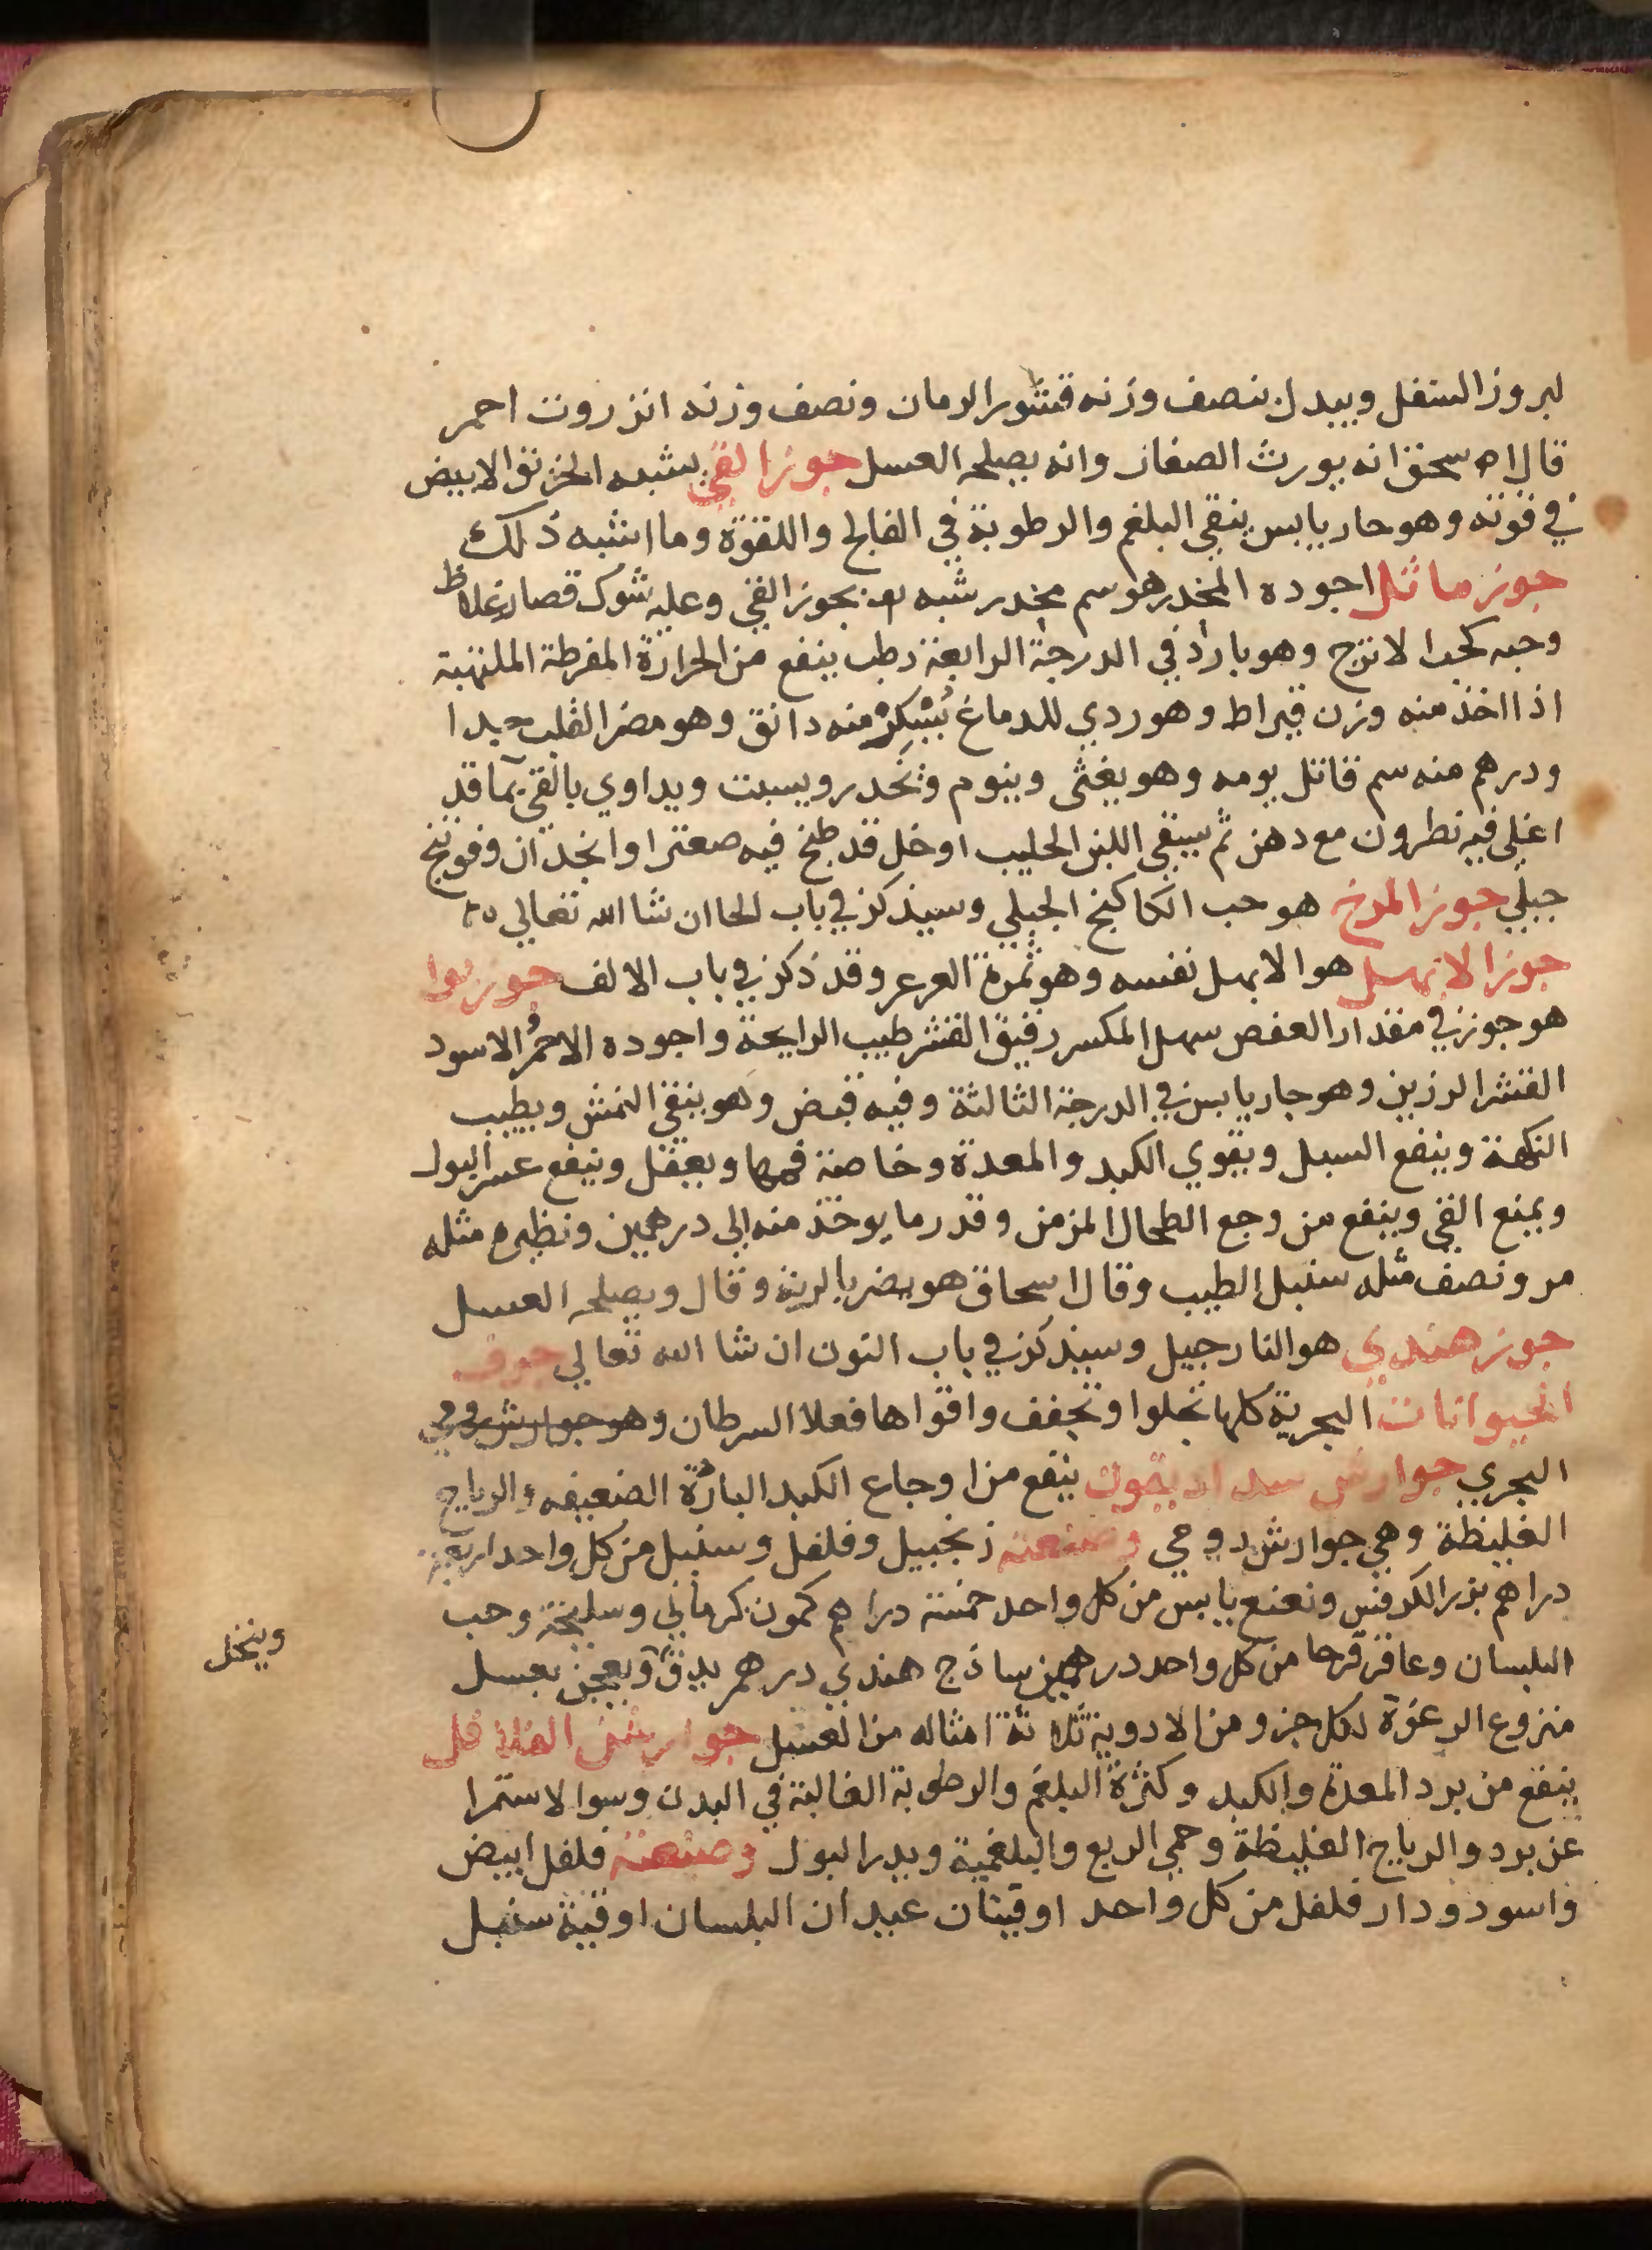 لبروز السفل ويبدل بنصف وزنه قشور الرمان ونصف وزنه انزروت احمر
قال اسحق انه يورث الصفار وانه يصلحه العسل جوز القي يشبه الخربق الابيض
في قوته وهو حار يابس ينقي البلغم والرطوبة في الفالج واللقوة وما اشبه ذلك
جوز ماثل اجوده المخدر هو سم مخدر شبه بجوز القي وعليه شوك قصار غلاظ
وحبه كحب الاترج وهو بارد في الدرجة الرابعة رطب ينفع من الحرارة المفرطة الملتهبة
اذا اخذ منه وزن قيراط وهو ردي للدماغ يُسْكِرُ منه دانق وهو مضر القلب جيدا
ودرهم منه سم قاتل يومه وهو يغثى وينوم وتخدر ويسبت ويداوي بالقي بما قد
اغلي فيه نطرون مع دهن ثم يسقي اللبن الحليب او خل قد طبخ فيه صعتر او انجدان وفوتنج
جبلي جوز المرخ هو حب الكاكنج الجبلي وسيذكر في باب الحا ان شا الله تعالي
جوز الابهل هو الابهل نفسه وهو ثمرة العرعر وقد ذكر في باب الالف جوز بوا
هو جوز في مقدار العفص سهل المكسر رقيق القشر طيب الرايحة واجوده الاحمر الاسود
القشر الرزين وهو حار يابس في الدرجة الثالثة وفيه قبض وهو ينقي النمش ويطيب
النكهة وينفع السبل ويقوي الكبد والمعدة وخاصة فمها ويعقل وينفع عسر البول
ويمنع القي وينفع من وجع الطحال المزمن وقدر ما يوخذ منه الي درهمين ونظيره مثله
مر ونصف مثله سنبل الطيب وقال اسحاق هو يضر بالرية وقال ويصلحه العسل
جوز هندي هو النارجيل وسيذكر في باب النون ان شا الله تعالي جوف
الحيوانات البحرية كلها تجلوا وتجفف واقواها فعلا السرطان وهو جوارش رومي
البحري جوارش ينفع من اوجاع الكبد الباردة الضعيفه والرياح
الغليظة وهي جوارش رومي وصنعته زنجبيل وفلفل وسنبل من كل واحد اربعة
دراهم بزر الكرفس ونعنع يابس من كل واحد خمسة دراهم كمون كرماني وسليخة وحب
البلسان وعاقرقرحا من كل واحد درهمين ساذج هندي درهم يدق ويعجن بعسل
وينخل
منزوع الرغوة لكل جزو من الادوية ثلاثة امثاله من العسل جوارش الفلافل
ينفع من برد المعدة والكبد وكثرة البلغم والرطوبة الغالبة في البدن وسو الاستمرا
عن برد والرياح الغليظة وحمي الربع والبلغمية ويدر البول وصنعته فلفل ابيض
واسود ودار فلفل من كل واحد اوقيتان عيدان البلسان اوقية سنبل